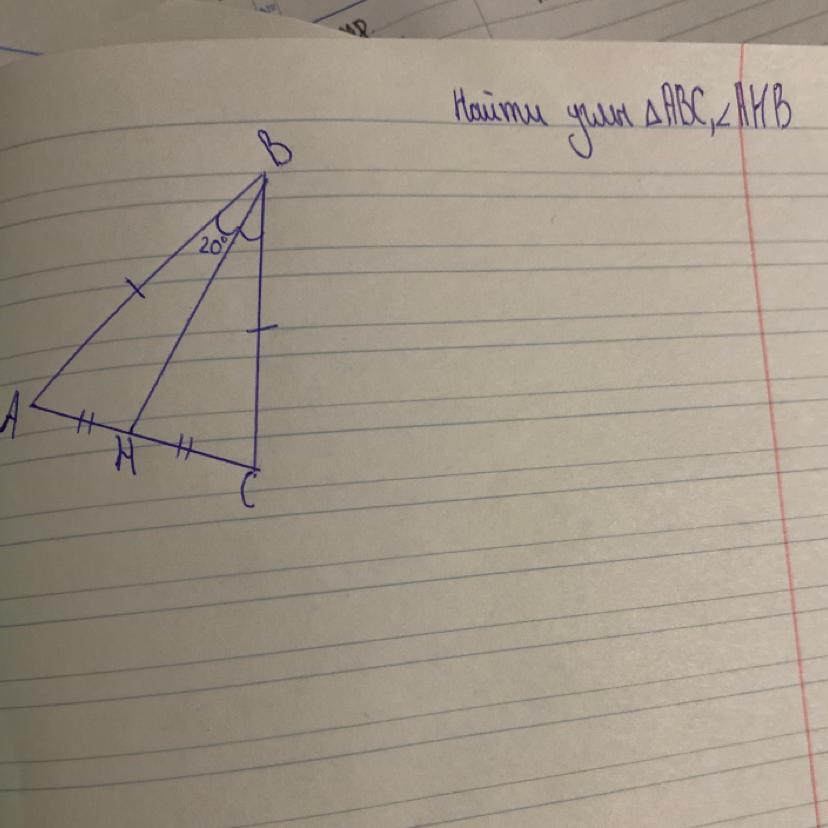 Найти углы △ABC, ∠AHB
B
20°
A
H
C